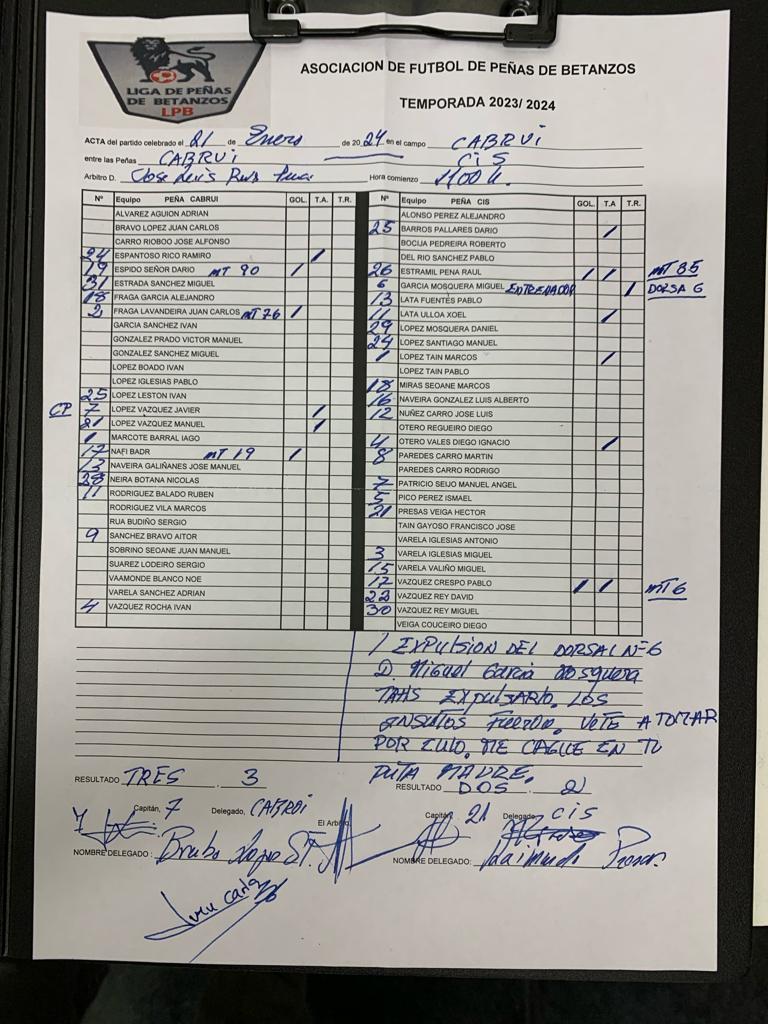 LIGA DE PEÑAS
DE BETANZOS
LPB
ASOCIACION DE FUTBOL DE PEÑAS DE BETANZOS
TEMPORADA 2023/ 2024
ACTA del partido celebrado el 21 de Enero de 2024 en el campo CABRUi
entre las Peñas CABRUi CiS
Arbitro D. Jose Luis Hora comienzo 1100 h.
Nº Equipo PEÑA CABRUI GOL. T.A. T.R.
ALVAREZ AGUION ADRIAN
BRAVO LOPEZ JUAN CARLOS
CARRO RIOBOO JOSE ALFONSO
24 ESPANTOSO RICO RAMIRO /
19 ESPIDO SEÑOR DARIO MT 90 /
31 ESTRADA SANCHEZ MIGUEL
18 FRAGA GARCIA ALEJANDRO
2 FRAGA LAVANDEIRA JUAN CARLOS MT 76 /
GARCIA SANCHEZ IVAN
GONZALEZ PRADO VICTOR MANUEL
GONZALEZ SANCHEZ MIGUEL
LOPEZ BOADO IVAN
LOPEZ IGLESIAS PABLO
25 LOPEZ LESTON IVAN
CP 7 LOPEZ VAZQUEZ JAVIER /
21 LOPEZ VAZQUEZ MANUEL /
1 MARCOTE BARRAL IAGO
17 NAFI BADR MT 19 /
13 NAVEIRA GALIÑANES JOSE MANUEL
28 NEIRA BOTANA NICOLAS
11 RODRIGUEZ BALADO RUBEN
RODRIGUEZ VILA MARCOS
RUA BUDIÑO SERGIO
9 SANCHEZ BRAVO AITOR
SOBRINO SEOANE JUAN MANUEL
SUAREZ LODEIRO SERGIO
VAAMONDE BLANCO NOE
VARELA SANCHEZ ADRIAN
4 VAZQUEZ ROCHA IVAN
Nº Equipo PEÑA CIS GOL. T.A T.R.
ALONSO PEREZ ALEJANDRO
25 BARROS PALLARES DARIO /
BOCIJA PEDREIRA ROBERTO
DEL RIO SANCHEZ PABLO
26 ESTRAMIL PENA RAUL / / MT 85
6 GARCIA MOSQUERA MIGUEL ENTRENADOR / DORSA 6
13 LATA FUENTES PABLO
11 LATA ULLOA XOEL /
29 LOPEZ MOSQUERA DANIEL
24 LOPEZ SANTIAGO MANUEL
1 LOPEZ TAIN MARCOS /
LOPEZ TAIN PABLO
18 MIRAS SEOANE MARCOS
16 NAVEIRA GONZALEZ LUIS ALBERTO
12 NUÑEZ CARRO JOSE LUIS
OTERO REGUEIRO DIEGO
4 OTERO VALES DIEGO IGNACIO /
8 PAREDES CARRO MARTIN
PAREDES CARRO RODRIGO
7 PATRICIO SEIJO MANUEL ANGEL
5 PICO PEREZ ISMAEL
21 PRESAS VEIGA HECTOR
TAIN GAYOSO FRANCISCO JOSE
VARELA IGLESIAS ANTONIO
3 VARELA IGLESIAS MIGUEL
15 VARELA VALIÑO MIGUEL
17 VAZQUEZ CRESPO PABLO / / MT 6
22 VAZQUEZ REY DAVID
30 VAZQUEZ REY MIGUEL
VEIGA COUCEIRO DIEGO
1 EXPULSION DEL DORSAL Nº6
D. Miguel Garcia Mosquera
TRAS EXPULSARLO. LOS
INSULTOS FUERON. VETE A TOMAR
POR CULO. ME CAGUE EN TU
PUTA MADRE.
RESULTADO TRES . 3
RESULTADO DOS . 2
Capitán, 7 Delegado, CABRUi
El Arbitro
Capitán 21 Delegado CiS
NOMBRE DELEGADO :
NOMBRE DELEGADO: Raimundo
Juan Carlos